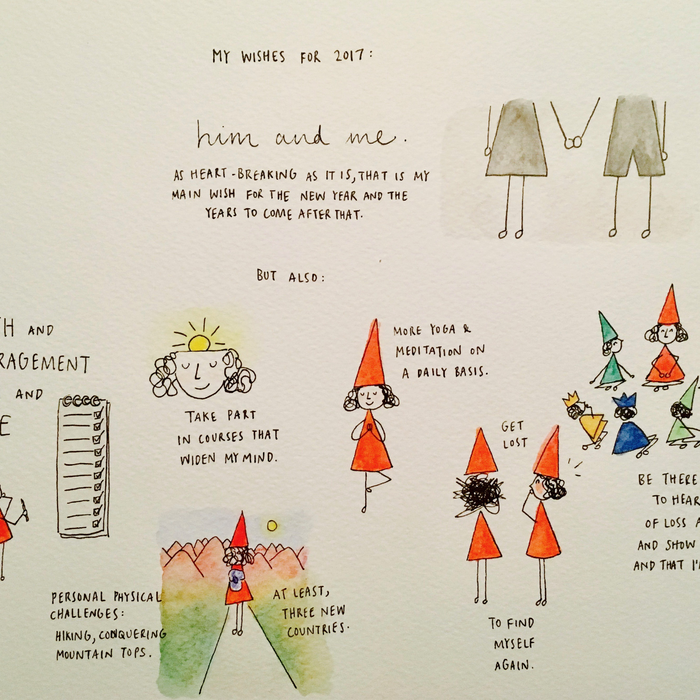 MY WISHES FOR 2017:
him and me.
AS HEART-BREAKING AS IT IS, THAT IS MY
MAIN WISH FOR THE NEW YEAR AND THE
YEARS TO COME AFTER THAT.
BUT ALSO:
AND
AND
TAKE PART
IN COURSES THAT
WIDEN MY MIND.
MORE YOGA &
MEDITATION ON
A DAILY BASIS.
GET
LOST
TO FIND
MYSELF
AGAIN.
BE THERE
TO HEAR
OF LOSS
AND SHOW
AND THAT
PERSONAL PHYSICAL
CHALLENGES:
HIKING, CONQUERING
MOUNTAIN TOPS.
AT LEAST,
THREE NEW
COUNTRIES.